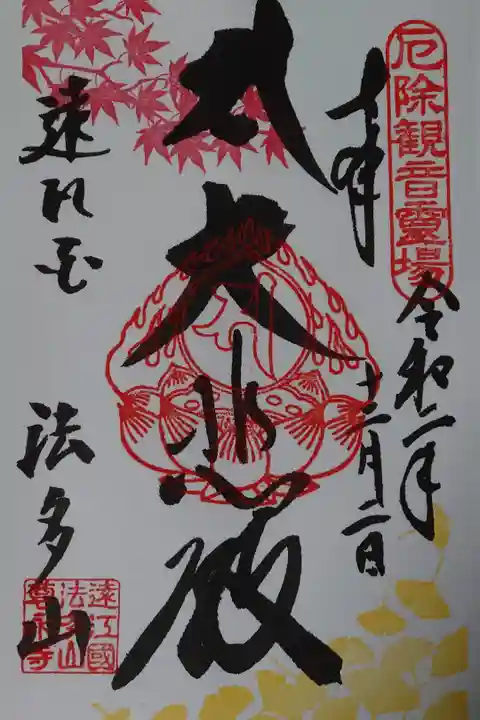 厄除観音霊場
奉拝
令和二年
十二月二日
大悲殿
法多山
遠江國
法多山
尊永寺